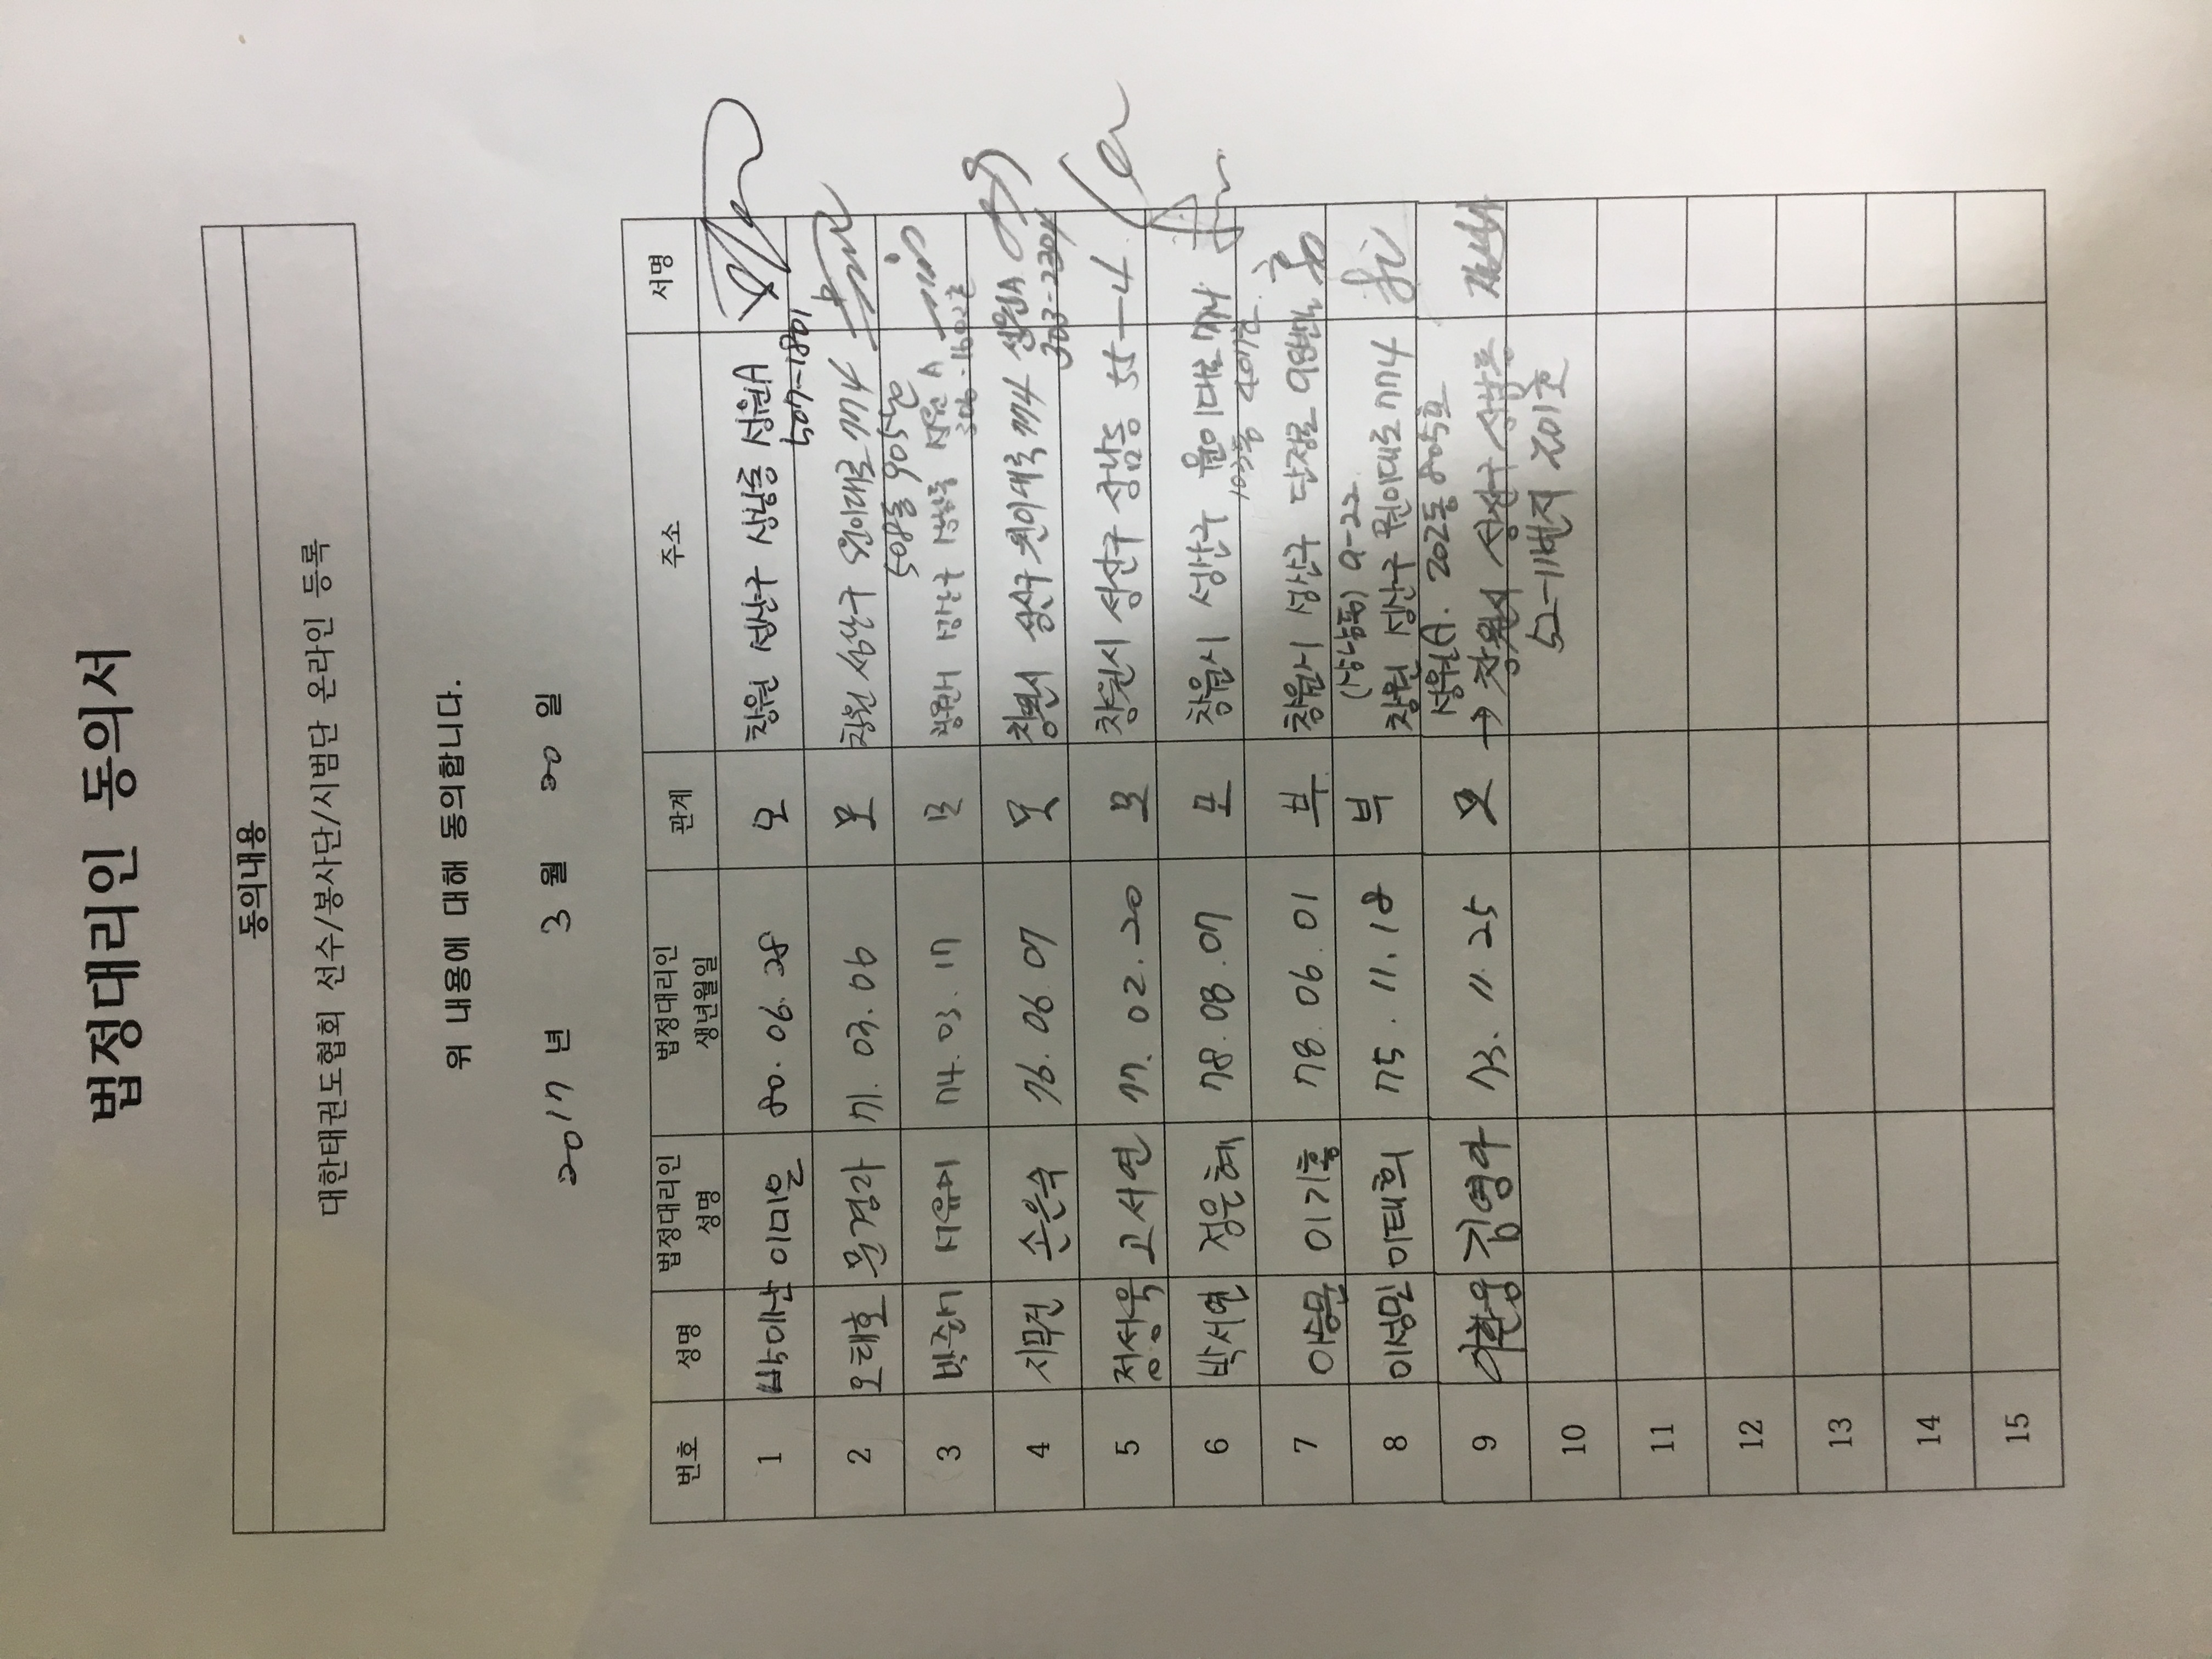 법정대리인 동의서
동의내용
대한태권도협회 선수/봉사단/시범단 온라인 등록
위 내용에 대해 동의합니다.
2017 년 3 월 20 일
번호 성명 법정대리인 성명 법정대리인 생년월일 관계 주소 서명
1 이미은 80. 06. 28 모 창원 성산구 상남동 성원A 507-1801
2 오태호 문경라 71. 03. 06 모 창원 성산구 원이대로 774 508동 905호
3 74. 03. 17 모 창원시 성산구 상남동 성원A
4 손은숙 76. 06. 07 모 창원시 성산구 원이대로 774 성원A 303-2204
5 정성욱 고서연 77. 02. 20 모 창원시 성산구 상남동 55-4
6 박서연 정은혜 78. 08. 07 모 창원시 성산구 원이대로 774
7 이승문 이기홍 78. 06. 01 부 창원시 성산구 단정로 98번길 9-22 (상남동)
8 이성민 이태희 75. 11. 18 부 창원 성산구 원이대로 774 성원A. 202동 805호
9 이환웅 김영아 73. 11. 25 모 → 창원시 성산구 상남동 52-11번지 201호
10
11
12
13
14
15